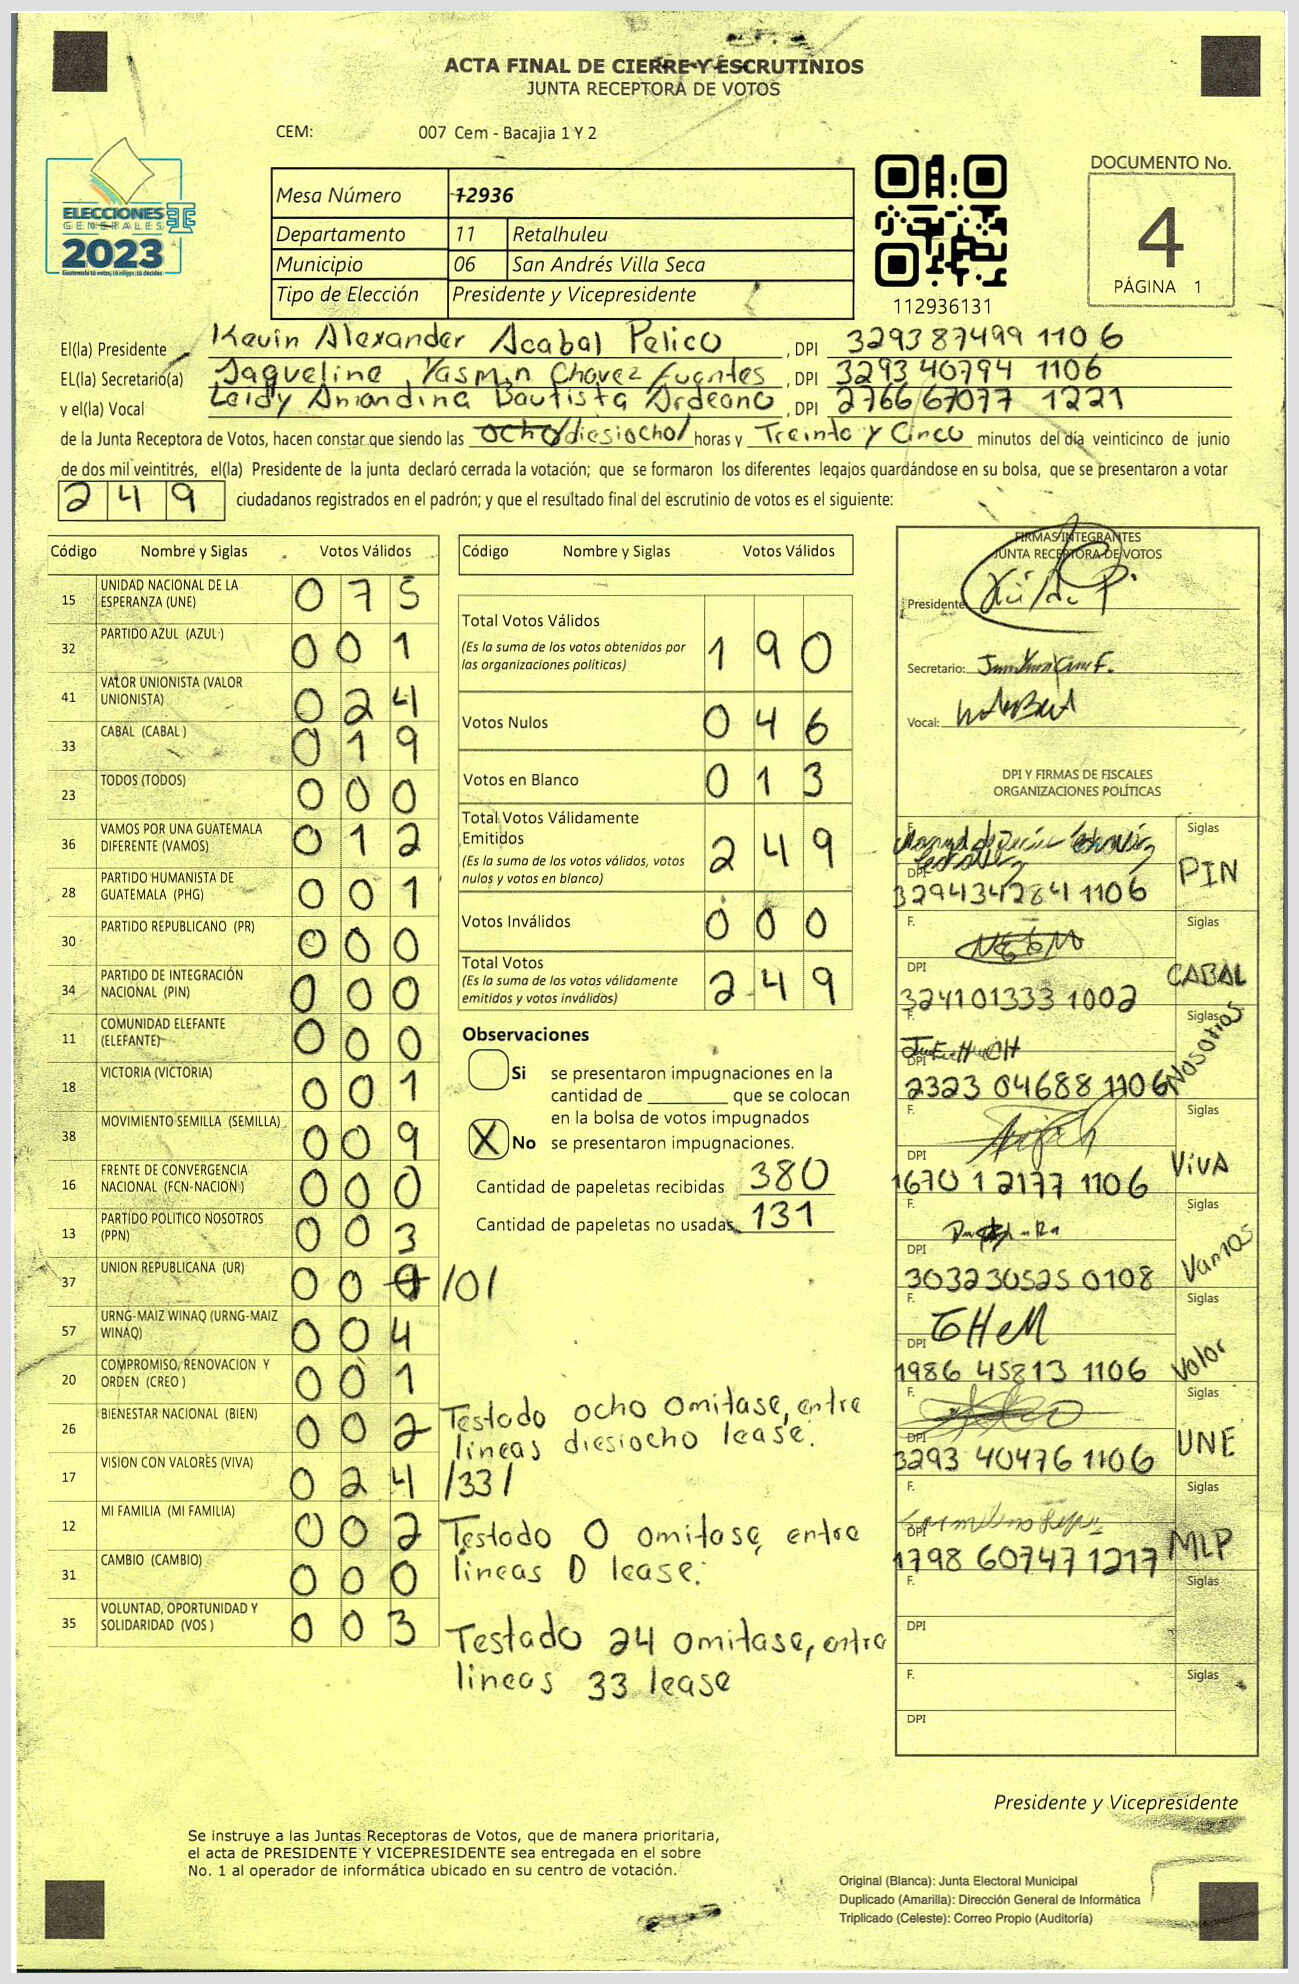 ACTA FINAL DE CIERRE Y ESCRUTINIOS
JUNTA RECEPTORA DE VOTOS
CEM: 007 Cem - Bacajia 1 Y 2
ELECCIONES
GENERALES
2023
Mesa Número 12936
Departamento 11 Retalhuleu
Municipio 06 San Andrés Villa Seca
Tipo de Elección Presidente y Vicepresidente
112936131
DOCUMENTO No.
4
PÁGINA 1
El(la) Presidente Kevin Alexander Acabal Pelico, DPI 329387499 1106
EL(la) Secretario(a) Jaqueline Yasmin Chavez Fuentes, DPI 3293 40794 1106
y el(la) Vocal Leidy Amandina Bautista Ardeano, DPI 2766 67077 1221
de la Junta Receptora de Votos, hacen constar que siendo las ocho/diesiocho/ horas y Treinta y Cinco minutos del día veinticinco de junio
de dos mil veintitrés, el(la) Presidente de la junta declaró cerrada la votación; que se formaron los diferentes legajos guardándose en su bolsa, que se presentaron a votar
249 ciudadanos registrados en el padrón; y que el resultado final del escrutinio de votos es el siguiente:
Código Nombre y Siglas Votos Válidos
15 UNIDAD NACIONAL DE LA ESPERANZA (UNE) 075
32 PARTIDO AZUL (AZUL ) 001
41 VALOR UNIONISTA (VALOR UNIONISTA) 024
33 CABAL (CABAL ) 019
23 TODOS (TODOS) 000
36 VAMOS POR UNA GUATEMALA DIFERENTE (VAMOS) 012
28 PARTIDO HUMANISTA DE GUATEMALA (PHG) 001
30 PARTIDO REPUBLICANO (PR) 000
34 PARTIDO DE INTEGRACIÓN NACIONAL (PIN) 000
11 COMUNIDAD ELEFANTE (ELEFANTE) 000
18 VICTORIA (VICTORIA) 001
38 MOVIMIENTO SEMILLA (SEMILLA) 009
16 FRENTE DE CONVERGENCIA NACIONAL (FCN-NACION) 000
13 PARTIDO POLITICO NOSOTROS (PPN) 003
37 UNION REPUBLICANA (UR) 000 /0/
57 URNG-MAIZ WINAQ (URNG-MAIZ WINAQ) 004
20 COMPROMISO, RENOVACION Y ORDEN (CREO ) 001
26 BIENESTAR NACIONAL (BIEN) 002
17 VISION CON VALORES (VIVA) 024 /33/
12 MI FAMILIA (MI FAMILIA) 002
31 CAMBIO (CAMBIO) 000
35 VOLUNTAD, OPORTUNIDAD Y SOLIDARIDAD (VOS ) 003
Código Nombre y Siglas Votos Válidos
Total Votos Válidos 190
(Es la suma de los votos obtenidos por
las organizaciones políticas)
Votos Nulos 046
Votos en Blanco 013
Total Votos Válidamente
Emitidos 249
(Es la suma de los votos válidos, votos
nulos y votos en blanco)
Votos Inválidos 000
Total Votos 249
(Es la suma de los votos válidamente
emitidos y votos inválidos)
Observaciones
Si se presentaron impugnaciones en la
cantidad de ________ que se colocan
en la bolsa de votos impugnados
X No se presentaron impugnaciones.
Cantidad de papeletas recibidas 380
Cantidad de papeletas no usadas 131
Testado ocho omitase, entre
lineas diesiocho lease.
Testado 0 omitase, entre
lineas 0 lease.
Testado 24 omitase, entre
lineas 33 lease
FIRMAS INTEGRANTES
JUNTA RECEPTORA DE VOTOS
Presidente:
Secretario:
Vocal:
DPI Y FIRMAS DE FISCALES
ORGANIZACIONES POLÍTICAS
F. Siglas
DPI 329434284 1106 PIN
F. Siglas
DPI 324101333 1002 CABAL
F. Siglas
DPI 2323 04688 1106 Nosotros
F. Siglas
DPI 1670 12177 1106 ViVA
F. Siglas
DPI 303230525 0108 Vamos
F. GHeM Siglas
DPI 1986 45813 1106 Valor
F. Siglas
DPI 3293 40476 1106 UNE
F. Siglas
DPI 1798 60747 1217 MLP
F. Siglas
DPI
F. Siglas
DPI
Presidente y Vicepresidente
Se instruye a las Juntas Receptoras de Votos, que de manera prioritaria,
el acta de PRESIDENTE Y VICEPRESIDENTE sea entregada en el sobre
No. 1 al operador de informática ubicado en su centro de votación.
Original (Blanca): Junta Electoral Municipal
Duplicado (Amarilla): Dirección General de Informática
Triplicado (Celeste): Correo Propio (Auditoría)